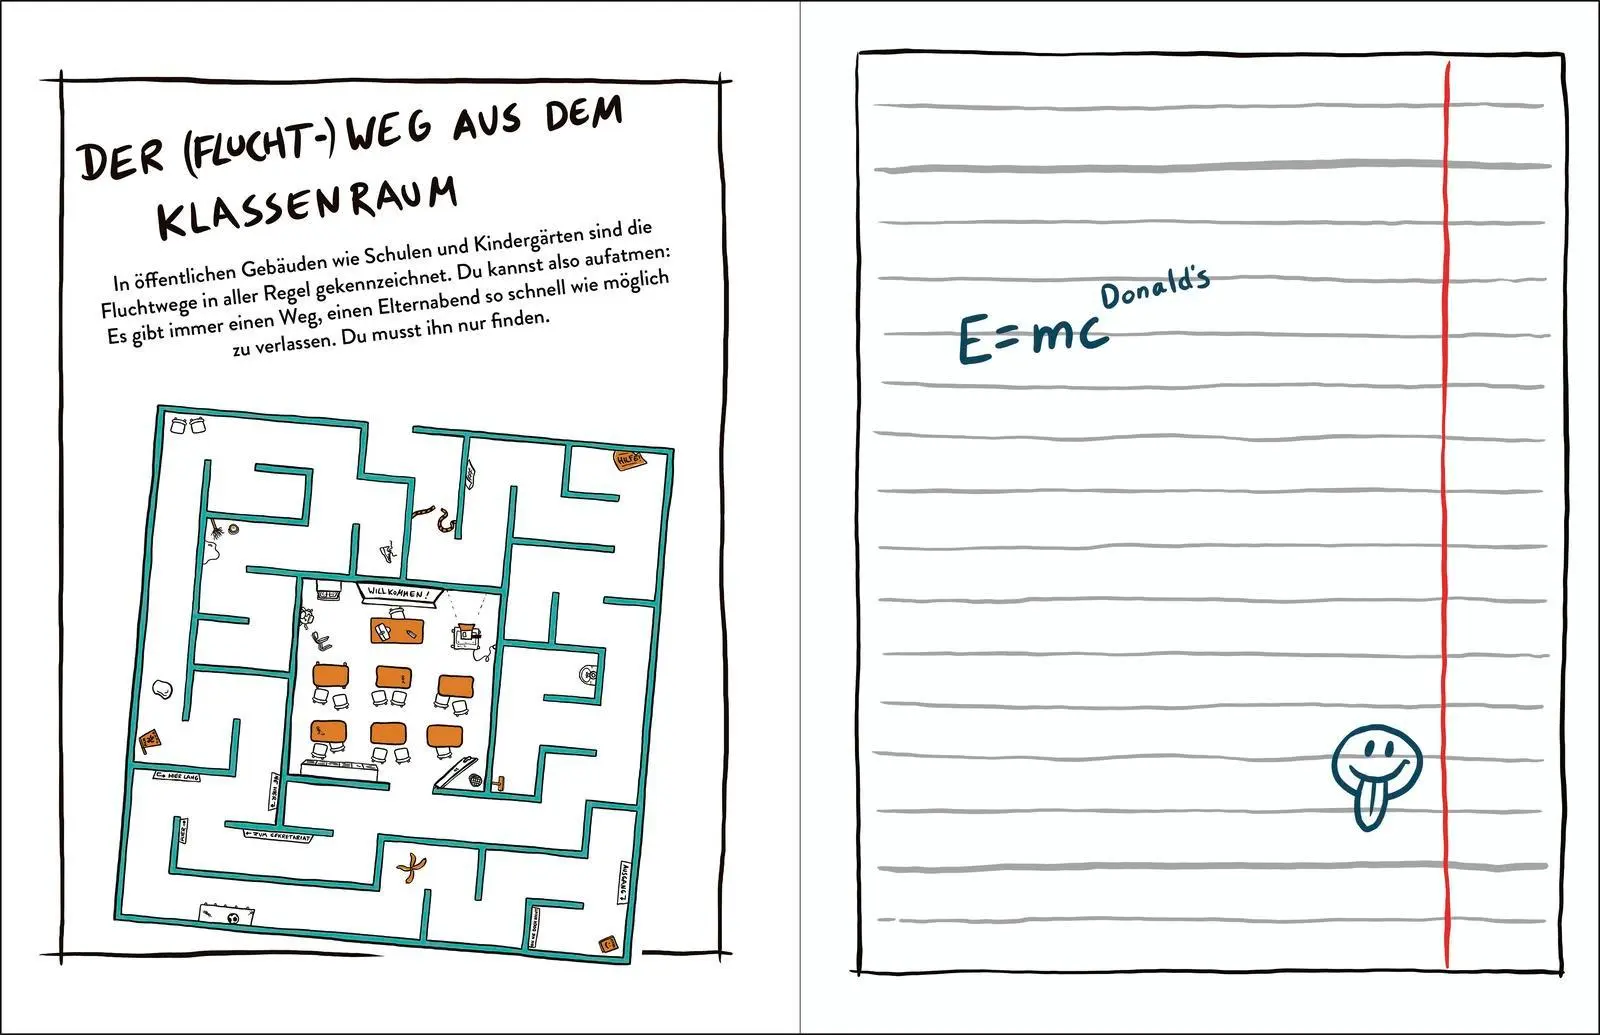 DER (FLUCHT-) WEG AUS DEM
KLASSENRAUM
In öffentlichen Gebäuden wie Schulen und Kindergärten sind die
Fluchtwege in aller Regel gekennzeichnet. Du kannst also aufatmen:
Es gibt immer einen Weg, einen Elternabend so schnell wie möglich
zu verlassen. Du musst ihn nur finden.
HILFE!
WILLKOMMEN!
HIER LANG
← ZUM SEKRETARIAT
AUSGANG?
E=mc Donald's